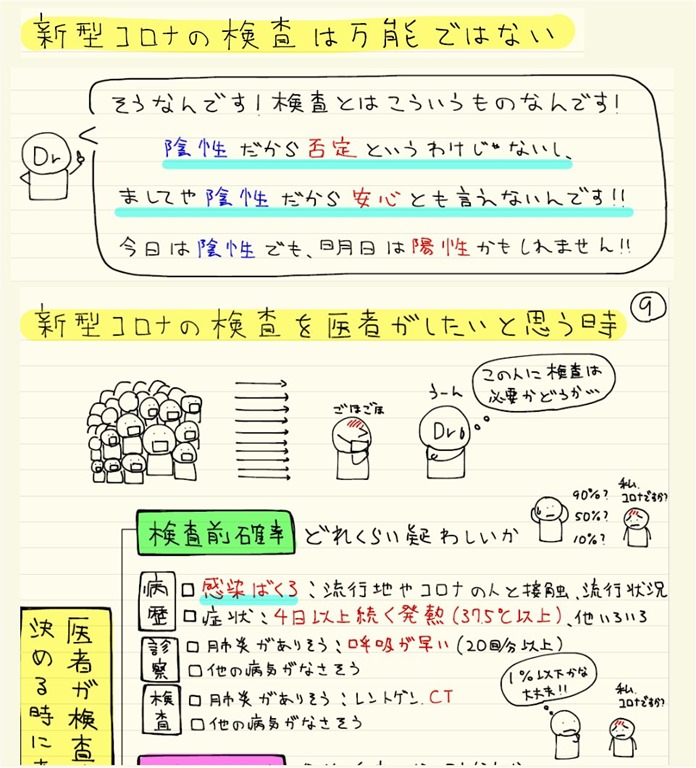 新型コロナの検査は万能ではない
そうなんです!検査とはこういうものなんです!
Dr
陰性だから否定というわけじゃないし、
ましてや陰性だから安心とも言えないんです!!
今日は陰性でも、明日は陽性かもしれません!!
⑨
新型コロナの検査を医者がしたいと思う時
この人に検査は
必要かどうか…
うーん
ごほごほ
Dr
検査前確率 どれくらい疑わしいか
90%?
50%?
10%?
私、
コロナですか?
病歴
□ 感染ばくろ:流行地やコロナの人と接触、流行状況
□ 症状:4日以上続く発熱(37.5℃以上)、他いろいろ
診察
□ 肺炎がありそう:呼吸が早い(20回/分以上)
□ 他の病気がなさそう
検査
□ 肺炎がありそう:レントゲン、CT
□ 他の病気がなさそう
1%以下かな
大丈夫!!
私、
コロナですか?
医者が検査
決める時に